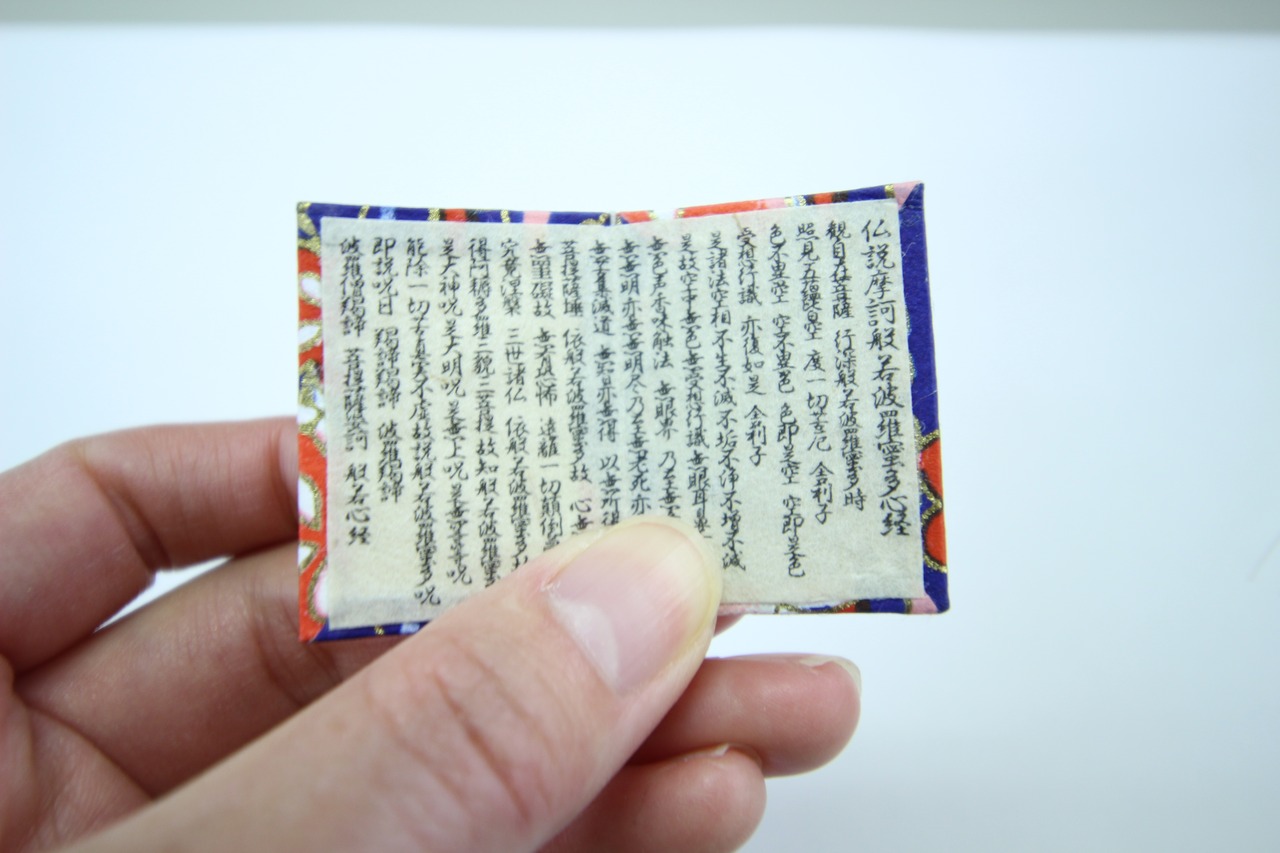 仏説摩訶般若波羅蜜多心経
観自在菩薩 行深般若波羅蜜多時
照見五蘊皆空 度一切苦厄 舎利子
色不異空 空不異色 色即是空 空即是色
受想行識 亦復如是 舎利子
是諸法空相 不生不滅 不垢不浄 不増不減
是故空中無色無受想行識無眼耳鼻
無色声香味触法 無眼界 乃至無
無無明亦無無明尽乃至無老死亦
無苦集滅道 無智亦無得 以無所得
菩提薩埵 依般若波羅蜜多故 心無
無罣礙故 無有恐怖 遠離一切顛倒
究竟涅槃 三世諸仏 依般若波羅蜜多
得阿耨多羅三藐三菩提 故知般若波羅蜜多
是大神呪 是大明呪 是無上呪 是無等等呪
能除一切苦真実不虚故説般若波羅蜜多呪
即説呪曰 羯諦羯諦 波羅羯諦
波羅僧羯諦 菩提薩婆訶 般若心経